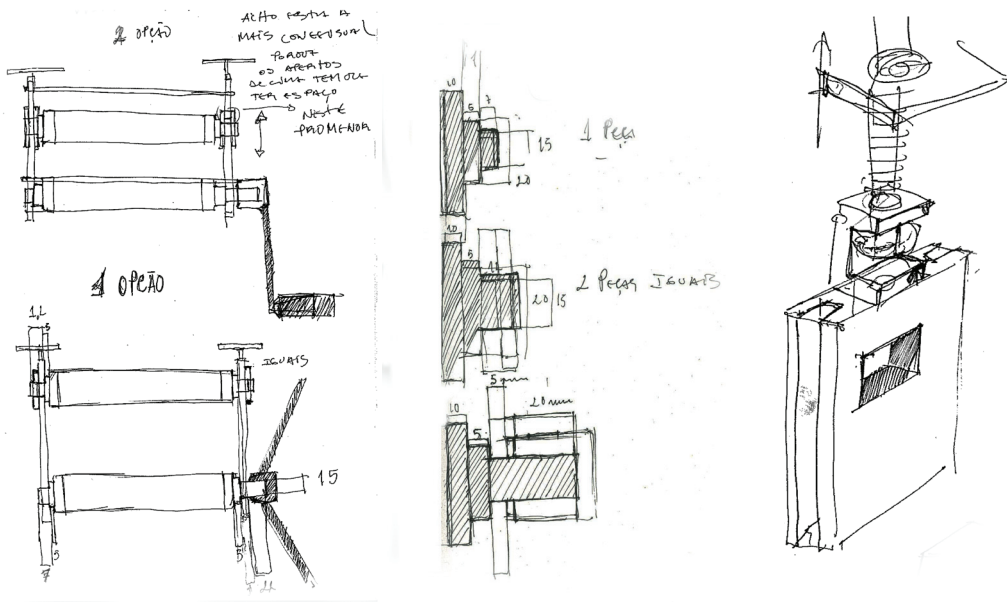 2 OPÇÃO
ACHO ESTA A
MAIS CONFUSUAL
PORQUE
OS APERTOS
DE CIMA TEM QUE
TER ESPAÇO
NESTE
PROMENOR
1 OPÇÃO
1,2
5
IGUAIS
15
5
7
5
10
5
7
15
20
1 PEÇA
10
5
20
15
2 PEÇAS IGUAIS
5 mm
10
5
20 mm